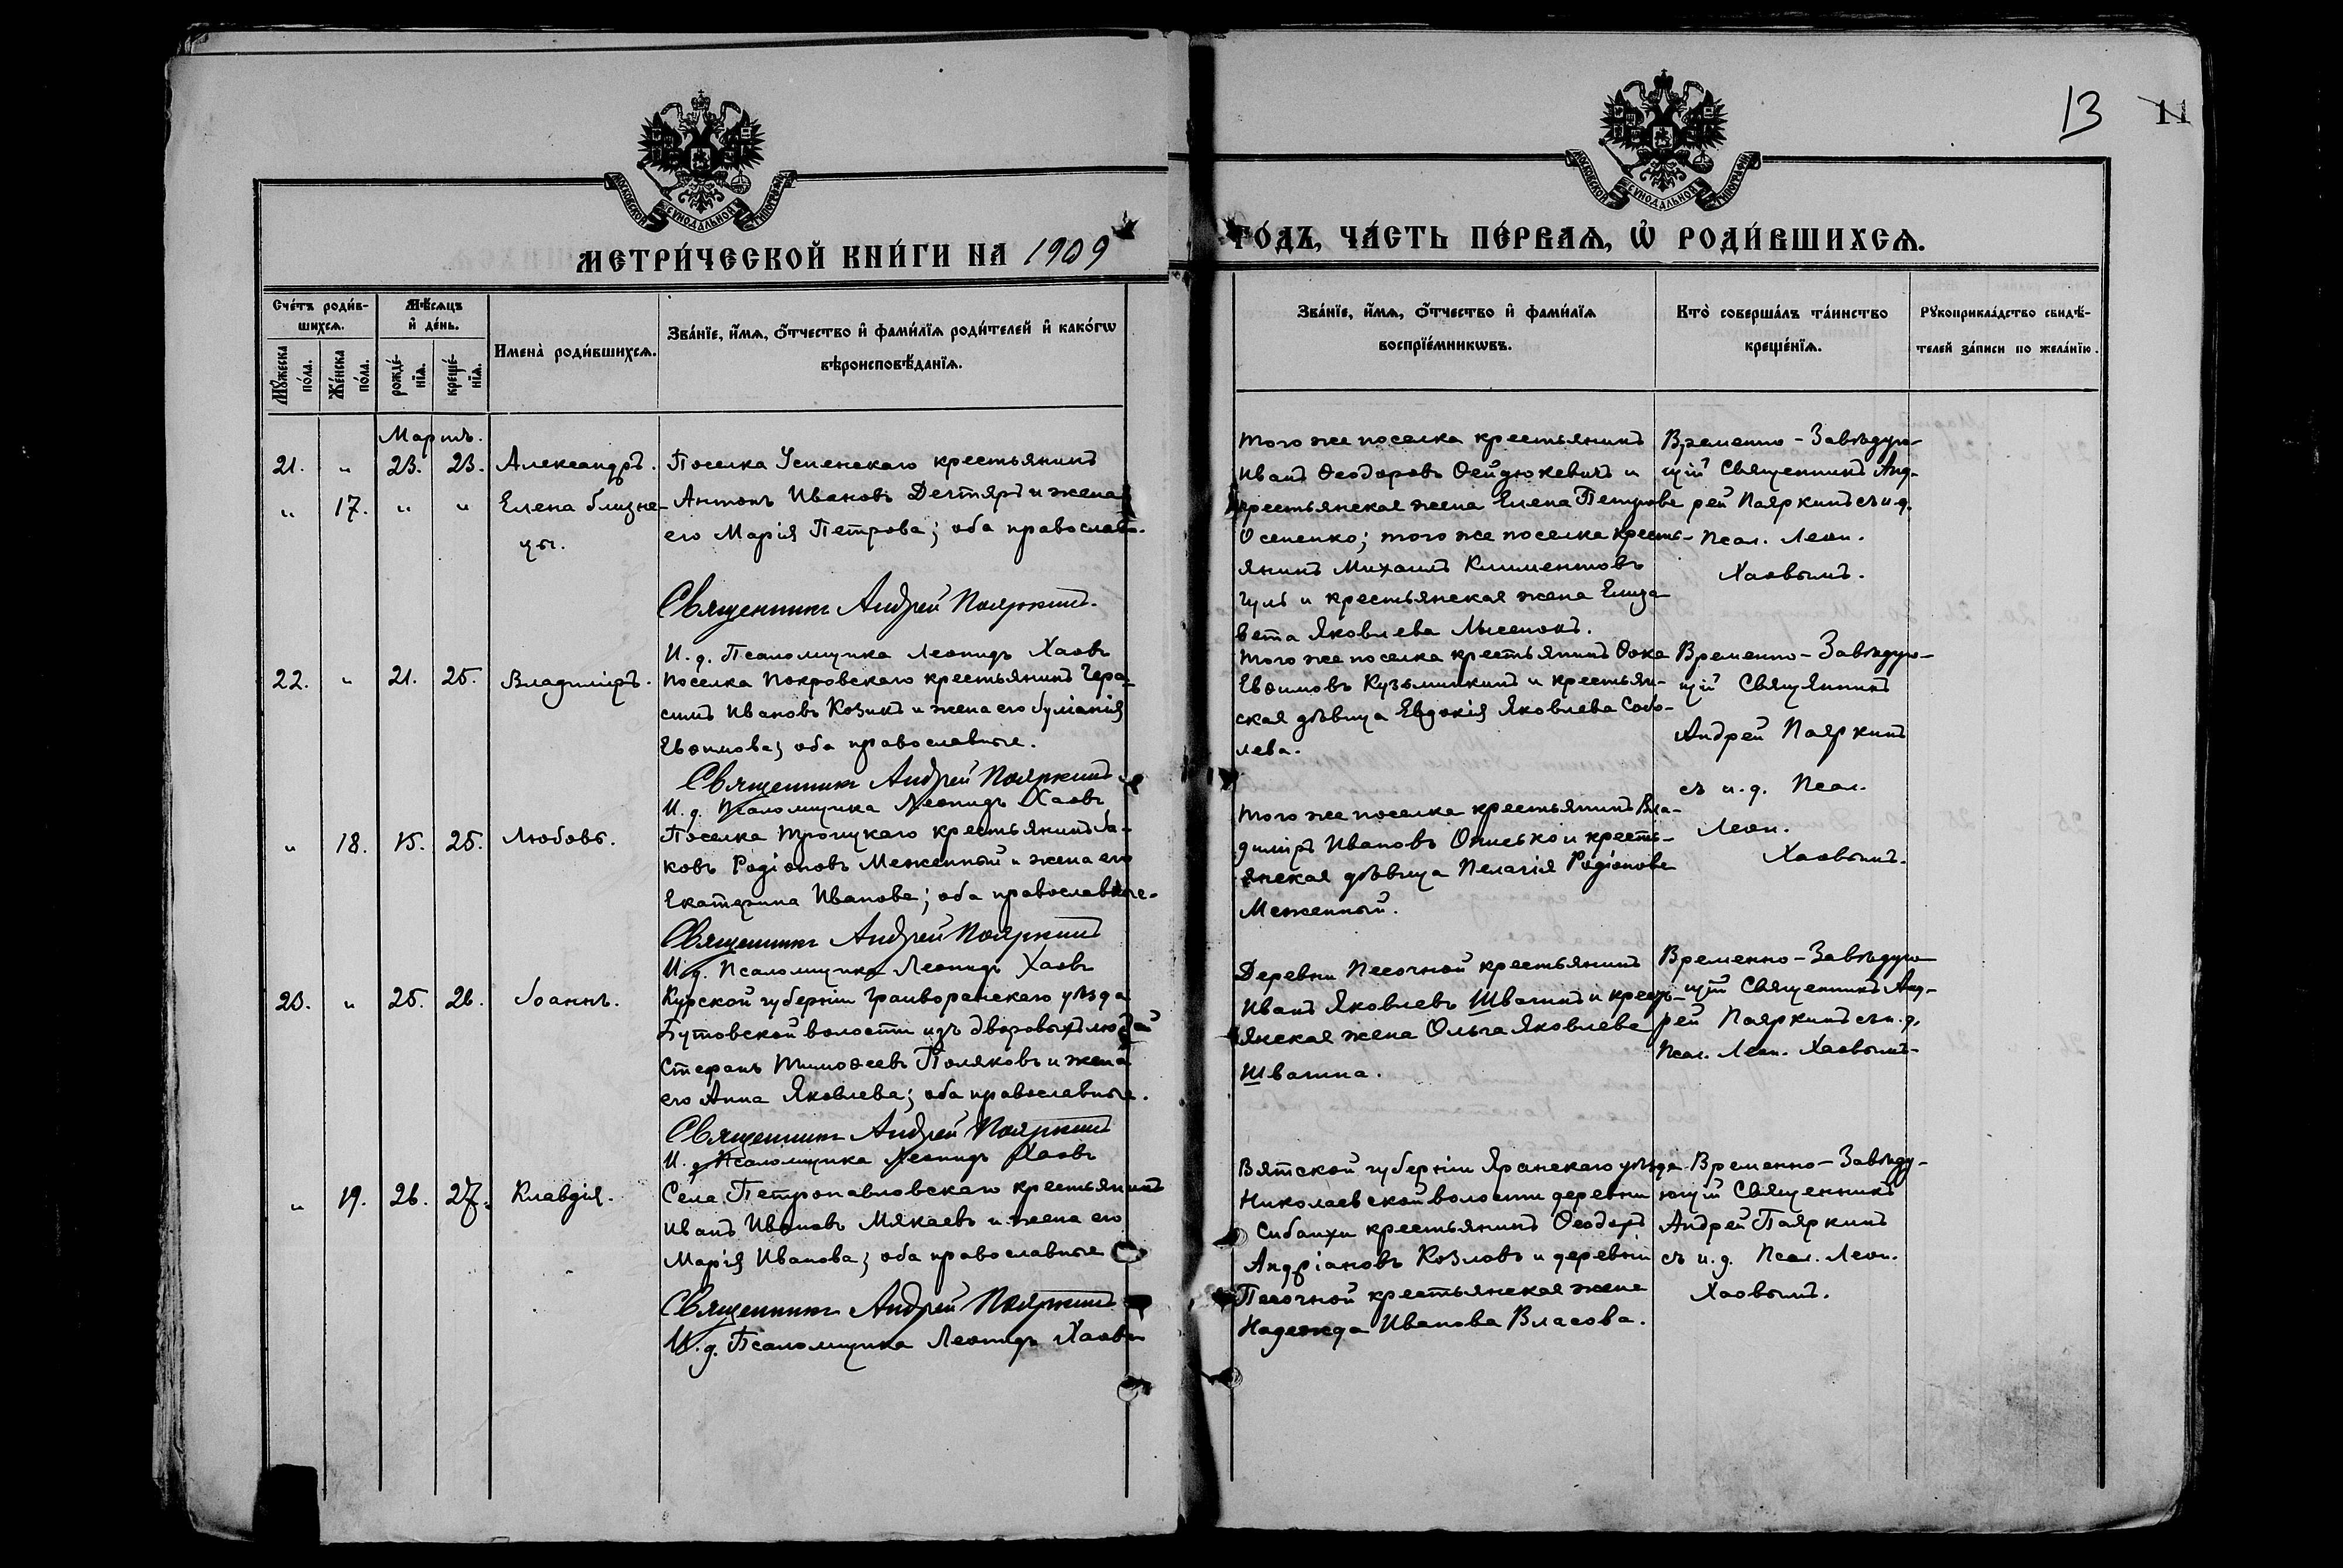 13 11
МОСКОВСКОЙ СУНОДАЛЬНОЙ ТИПОГРАФІИ
МОСКОВСКОЙ СУНОДАЛЬНОЙ ТИПОГРАФІИ
МЕТРИ́ЧЕСКОЙ КНИ́ГИ НА 1909
ГО́ДЪ, ЧА́СТЬ ПЕ́РВАЯ, Ѡ҆ РОДИ́ВШИХСЯ.
Сче́тъ роди́в-
шихся.
Мѣ́сяцъ
и҆ де́нь.
Мꙋ́жеска
по́ла.
Же́нска
по́ла.
рожде́-
нїя.
креще́-
нїя.
Имена̀ роди́вшихся.
Зва́нїе, и҆́мя, ѻ҆́тчество и҆ фами́лїя роди́телей и҆ како́гѡ
вѣроисповѣ́данїя.
Зва́нїе, и҆́мя, ѻ҆́тчество и҆ фами́лїя
воспрїе́мникѡвъ.
Кто̀ соверша́лъ та́инство
креще́нїя.
Рꙋкоприкла́дство свидѣ́-
телей за́писи по жела́нїю.
Мартъ.
21. " 23. 23. Александръ.
" 17. " " Елена близне-
цы.
Поселка Успенскаго крестьянинъ
Антонъ Ивановъ Дегтярь и жена
его Марія Петрова; оба православн.
Священникъ Андрей Пояркинъ.
И. д. Псаломщика Леонидъ Хаовъ
того же поселка крестьянинъ
Иванъ Ѳеодоровъ Фейдюкевичъ и
крестьянская жена Елена Петрова
Осипенко; того же поселка кресть-
янинъ Михаилъ Климентовъ
Гуль и крестьянская жена Елиза-
вета Яковлева Лысенокъ.
Временно-Завѣдую-
щій Священникъ Анд-
рей Пояркинъ съ и.д.
Псал. Леон.
Хаовымъ.
22. " 21. 25. Владиміръ.
Поселка Покровскаго крестьянинъ Гера-
симъ Ивановъ Козикъ и жена его Іуліанія
Евѳимова; оба православные.
Священникъ Андрей Пояркинъ.
И. д. Псаломщика Леонидъ Хаовъ
того же поселка крестьянинъ Ѳока
Евѳимовъ Кузьминкинъ и крестьян-
ская дѣвица Евдокія Яковлева Собо-
лева.
Временно-Завѣдую-
щій Священникъ
Андрей Пояркинъ
съ и. д. Псал.
Леон.
Хаовымъ.
" 18. 15. 25. Любовь.
Поселка Троицкаго крестьянинъ Іа-
ковъ Родіоновъ Меженный и жена его
Екатерина Иванова; оба православные.
Священникъ Андрей Пояркинъ
И. д. Псаломщика Леонидъ Хаовъ
того же поселка крестьянинъ Вла-
диміръ Ивановъ Онисько и кресть-
янская дѣвица Пелагія Родіонова
Меженный.
23. " 25. 26. Іоаннъ.
Курской губерніи Грайворонскаго уѣзда
Бутовской волости изъ дворовыхъ людей
Стефанъ Тимоѳеевъ Поляковъ и жена
его Анна Яковлева; оба православные.
Священникъ Андрей Пояркинъ
И. д. Псаломщика Леонидъ Хаовъ
Деревни Песочной крестьянинъ
Иванъ Яковлевъ Швагинъ и кресть-
янская жена Ольга Яковлева
Швагина.
Временно-Завѣдую-
щій Священникъ Анд-
рей Пояркинъ съ и.д.
Псал. Леон. Хаовымъ.
" 19. 26. 27. Клавдія.
Села Петропавловскаго крестьянинъ
Иванъ Ивановъ Мякаевъ и жена его
Марія Иванова; оба православные
Священникъ Андрей Пояркинъ
И. д. Псаломщика Леонидъ Хаовъ
Вятской губерніи Яранскаго уѣзда
Николаевской волости деревни
крестьянинъ Ѳеодоръ
Андріановъ Козловъ и деревни
Песочной крестьянская жена
Надежда Иванова Власова.
Временно-Завѣду-
ющій Священникъ
Андрей Пояркинъ
съ и. д. Псал. Леон.
Хаовымъ.